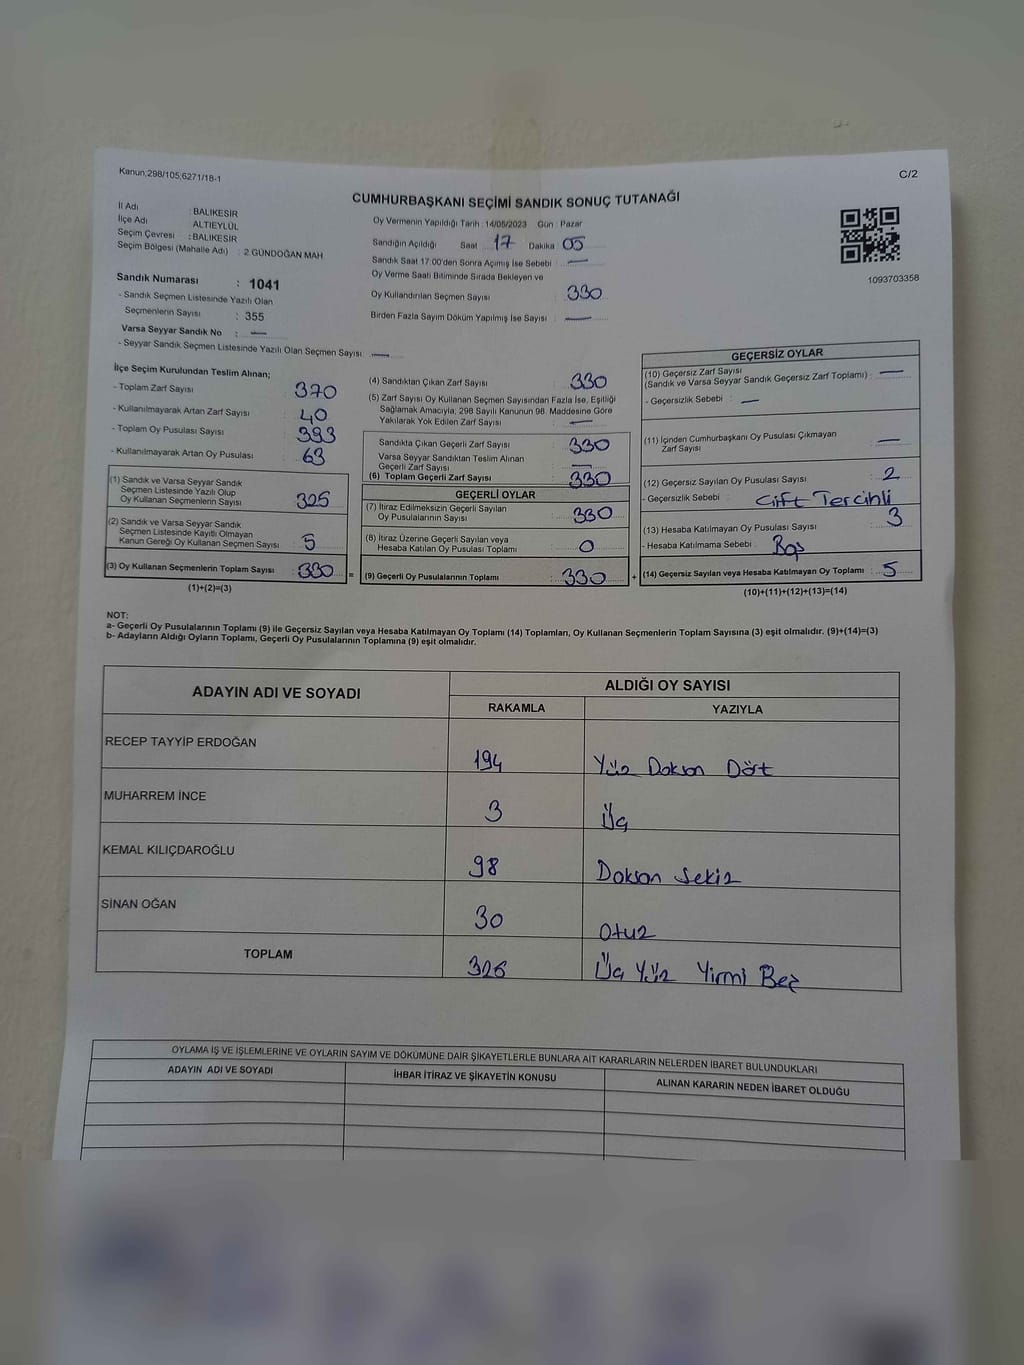 Kanun,298/105,6271/18-1
C/2
CUMHURBAŞKANI SEÇİMİ SANDIK SONUÇ TUTANAĞI
İl Adı : BALIKESİR
İlçe Adı : ALTIEYLÜL
Seçim Çevresi : BALIKESİR
Seçim Bölgesi (Mahalle Adı) : 2 GÜNDOĞAN MAH
Sandık Numarası : 1041
- Sandık Seçmen Listesinde Yazılı Olan
Seçmenlerin Sayısı : 355
Varsa Seyyar Sandık No : —
- Seyyar Sandık Seçmen Listesinde Yazılı Olan Seçmen Sayısı : —
Oy Vermenin Yapıldığı Tarih : 14/05/2023 Gün : Pazar
Sandığın Açıldığı Saat : 17 Dakika : 05
Sandık Saat 17:00'den Sonra Açımış İse Sebebi : —
Oy Verme Saati Bitiminde Sırada Bekleyen ve
Oy Kullandırılan Seçmen Sayısı : 330
Birden Fazla Sayım Döküm Yapılmış İse Sayısı : —
1093703358
İlçe Seçim Kurulundan Teslim Alınan;
- Toplam Zarf Sayısı : 370
- Kullanılmayarak Artan Zarf Sayısı : 40
- Toplam Oy Pusulası Sayısı : 393
- Kullanılmayarak Artan Oy Pusulası : 63
(1) Sandık ve Varsa Seyyar Sandık
Seçmen Listesinde Yazılı Olup
Oy Kullanan Seçmenlerin Sayısı : 325
(2) Sandık ve Varsa Seyyar Sandık
Seçmen Listesinde Kayıtlı Olmayan
Kanun Gereği Oy Kullanan Seçmen Sayısı : 5
(3) Oy Kullanan Seçmenlerin Toplam Sayısı : 330 =
(1)+(2)=(3)
(4) Sandıktan Çıkan Zarf Sayısı : 330
(5) Zarf Sayısı Oy Kullanan Seçmen Sayısından Fazla İse, Eşitliği
Sağlamak Amacıyla, 298 Sayılı Kanunun 98. Maddesine Göre
Yakılarak Yok Edilen Zarf Sayısı : —
Sandıkta Çıkan Geçerli Zarf Sayısı : 330
Varsa Seyyar Sandıktan Teslim Alınan
Geçerli Zarf Sayısı : —
(6) Toplam Geçerli Zarf Sayısı : 330
GEÇERLİ OYLAR
(7) İtiraz Edilmeksizin Geçerli Sayılan
Oy Pusulalarının Sayısı : 330
(8) İtiraz Üzerine Geçerli Sayılan veya
Hesaba Katılan Oy Pusulası Toplamı : 0
(9) Geçerli Oy Pusulalarının Toplamı : 330 +
GEÇERSİZ OYLAR
(10) Geçersiz Zarf Sayısı
(Sandık ve Varsa Seyyar Sandık Geçersiz Zarf Toplamı) : —
- Geçersizlik Sebebi : —
(11) İçinden Cumhurbaşkanı Oy Pusulası Çıkmayan
Zarf Sayısı : —
(12) Geçersiz Sayılan Oy Pusulası Sayısı : 2
- Geçersizlik Sebebi : Çift Tercihli
(13) Hesaba Katılmayan Oy Pusulası Sayısı : 3
- Hesaba Katılmama Sebebi : Boş
(14) Geçersiz Sayılan veya Hesaba Katılmayan Oy Toplamı : 5
(10)+(11)+(12)+(13)=(14)
NOT:
a- Geçerli Oy Pusulalarının Toplamı (9) ile Geçersiz Sayılan veya Hesaba Katılmayan Oy Toplamı (14) Toplamları, Oy Kullanan Seçmenlerin Toplam Sayısına (3) eşit olmalıdır. (9)+(14)=(3)
b- Adayların Aldığı Oyların Toplamı, Geçerli Oy Pusulalarının Toplamına (9) eşit olmalıdır.
ADAYIN ADI VE SOYADI ALDIĞI OY SAYISI
RAKAMLA YAZIYLA
RECEP TAYYİP ERDOĞAN 194 Yüz Doksan Dört
MUHARREM İNCE 3 Üç
KEMAL KILIÇDAROĞLU 98 Doksan Sekiz
SİNAN OĞAN 30 Otuz
TOPLAM 326 Üç Yüz Yirmi Beş
OYLAMA İŞ VE İŞLEMLERİNE VE OYLARIN SAYIM VE DÖKÜMÜNE DAİR ŞİKAYETLERLE BUNLARA AİT KARARLARIN NELERDEN İBARET BULUNDUKLARI
ADAYIN ADI VE SOYADI İHBAR İTİRAZ VE ŞİKAYETİN KONUSU ALINAN KARARIN NEDEN İBARET OLDUĞU